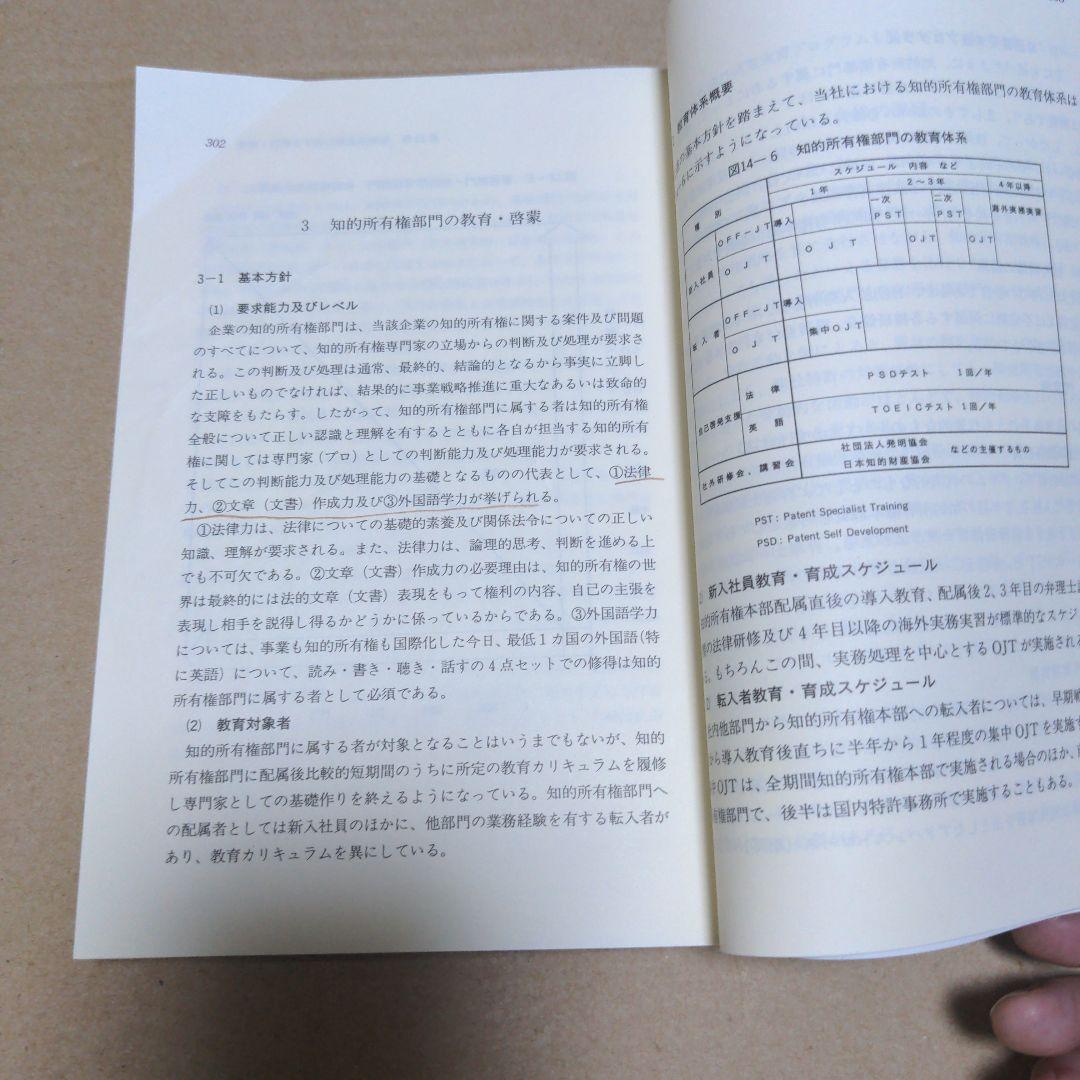 302
3 知的所有権部門の教育・啓蒙
3−1 基本方針
(1) 要求能力及びレベル
企業の知的所有権部門は、当該企業の知的所有権に関する案件及び問題
のすべてについて、知的所有権専門家の立場からの判断及び処理が要求さ
れる。この判断及び処理は通常、最終的、結論的となるから事実に立脚し
た正しいものでなければ、結果的に事業戦略推進に重大なあるいは致命的
な支障をもたらす。したがって、知的所有権部門に属する者は知的所有権
全般について正しい認識と理解を有するとともに各自が担当する知的所有
権に関しては専門家（プロ）としての判断能力及び処理能力が要求される。
そしてこの判断能力及び処理能力の基礎となるものの代表として、①法律
力、②文章（文書）作成力及び③外国語学力が挙げられる。
①法律力は、法律についての基礎的素養及び関係法令についての正しい
知識、理解が要求される。また、法律力は、論理的思考、判断を進める上
でも不可欠である。②文章（文書）作成力の必要理由は、知的所有権の世
界は最終的には法的文章（文書）表現をもって権利の内容、自己の主張を
表現し相手を説得し得るかどうかに係っているからである。③外国語学力
については、事業も知的所有権も国際化した今日、最低１カ国の外国語（特
に英語）について、読み・書き・聴き・話すの４点セットでの修得は知的
所有権部門に属する者として必須である。
(2) 教育対象者
知的所有権部門に属する者が対象となることはいうまでもないが、知的
所有権部門に配属後比較的短期間のうちに所定の教育カリキュラムを履修
し専門家としての基礎作りを終えるようになっている。知的所有権部門へ
の配属者としては新入社員のほかに、他部門の業務経験を有する転入者が
あり、教育カリキュラムを異にしている。
教育体系概要
の基本方針を踏まえて、当社における知的所有権部門の教育体系は
6に示すようになっている。
図14−6 知的所有権部門の教育体系
種別 スケジュール 内容 など
1年 2〜3年 4年以降
新入社員 OFF−JT 導入 一次PST 二次PST 海外実務実習
OJT OJT OJT OJT
転入者 OFF−JT 導入
OJT 集中OJT
自己啓発支援 法律 PSDテスト 1回／年
英語 TOEICテスト 1回／年
社外研修会、講習会 社団法人発明協会 日本知的財産協会 などの主催するもの
PST：Patent Specialist Training
PSD：Patent Self Development
新入社員教育・育成スケジュール
知的所有権本部配属直後の導入教育、配属後2、3年目の弁理士
の法律研修及び4年目以降の海外実務実習が標準的なスケジ
もちろんこの間、実務処理を中心とするOJTが実施される
転入者教育・育成スケジュール
社内他部門から知的所有権本部への転入者については、早期戦
から導入教育後直ちに半年から1年程度の集中OJTを実施す
OJTは、全期間知的所有権本部で実施される場合のほか、
権部門で、後半は国内特許事務所で実施することもある。